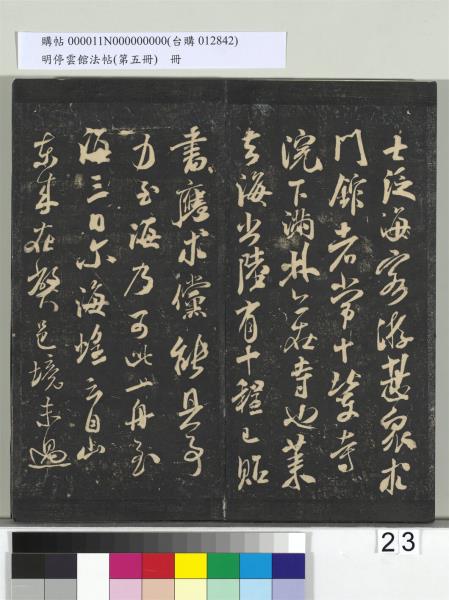 購帖 000011N000000000(台購 012842)
明停雲館法帖(第五冊) 冊
士泛海客游甚众求
門館者常十輩寺
浣下满林亦在寺也某
去海尚陸有十程已贴
書應求儻能具
力至海乃可此一舟至
海三日尔海蛙云自山
東来在贊邑境未過
23